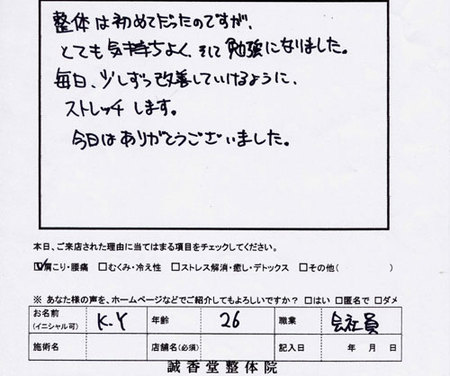 整体は初めてだったのですが、
とても気持ちよく、そして勉強になりました。
毎日、少しずつ改善していけるように、
ストレッチします。
今日はありがとうございました。
本日、ご来店された理由に当てはまる項目をチェックしてください。
☑肩こり・腰痛 □むくみ・冷え性 □ストレス解消・癒し・デトックス □その他( )
※ あなた様の声を、ホームページなどでご紹介してもよろしいですか? □はい □匿名で □ダメ
お名前(イニシャル可) K.Y 年齢 26 職業 会社員
施術名 店舗名(必須) 記入日 年 月 日
誠香堂整体院